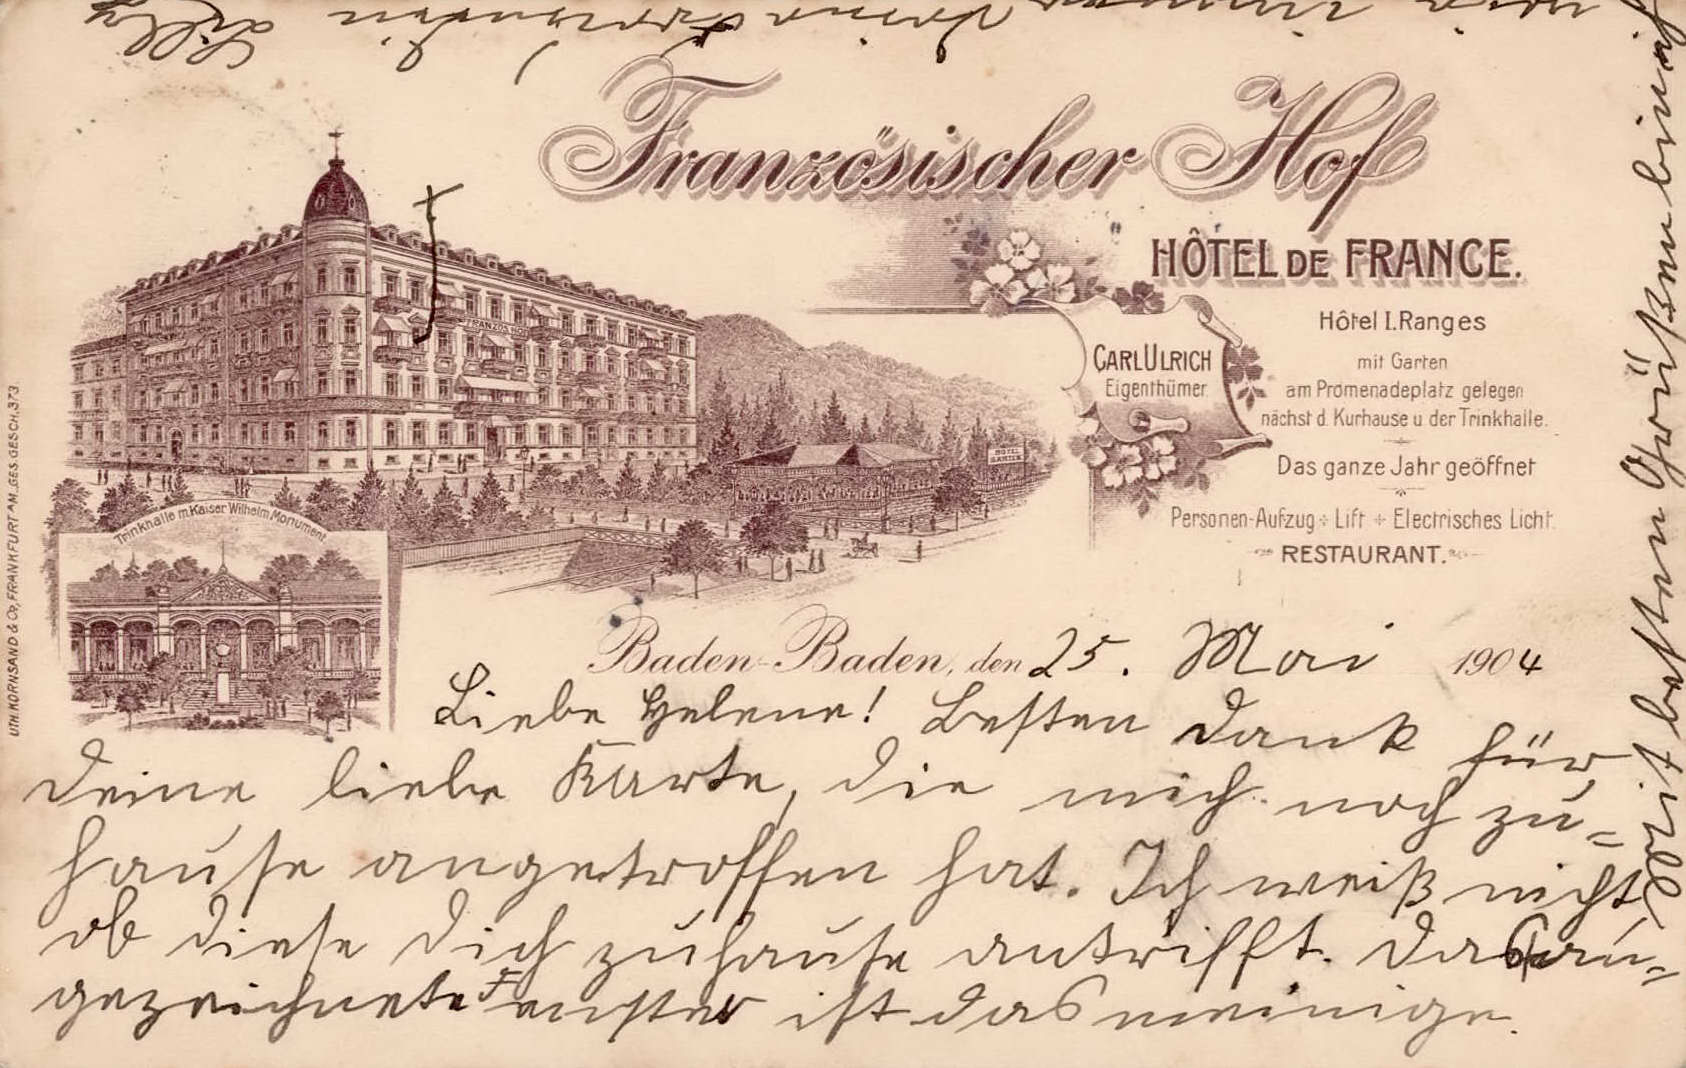 Französischer Hof
HÔTEL DE FRANCE.
Hôtel I. Ranges
mit Garten
am Promenadeplatz gelegen
nächst d. Kurhause u. der Trinkhalle.
Das ganze Jahr geöffnet
Personen-Aufzug ÷ Lift ÷ Electrisches Licht.
RESTAURANT.
CARL ULRICH
Eigenthümer.
FRANZÖS. HOF
HOTEL
GARTEN
Trinkhalle m. Kaiser Wilhelm Monument.
UTH. KORNSAND & Co, FRANKFURT A/M. GES. GESCH. 373.
Baden-Baden, den 25. Mai 1904
Liebe Helene! Besten Dank für
Deine liebe Karte, die mich noch zu=
hause angetroffen hat. Ich weiß nicht,
ob diese Dich zuhause antrifft. Das an=
gezeichnete Fenster ist das meinige.
Mit besten Grüßen bin ich
wie immer Deine Freundin Lilly